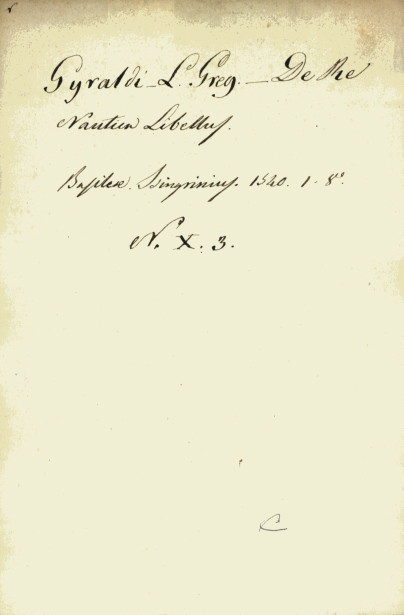 Gyraldi - L. Greg. - De Re
Nautica Libellus.
Basileæ. Isingrinius. 1540. 1. 8°.
N. X. 3.
C